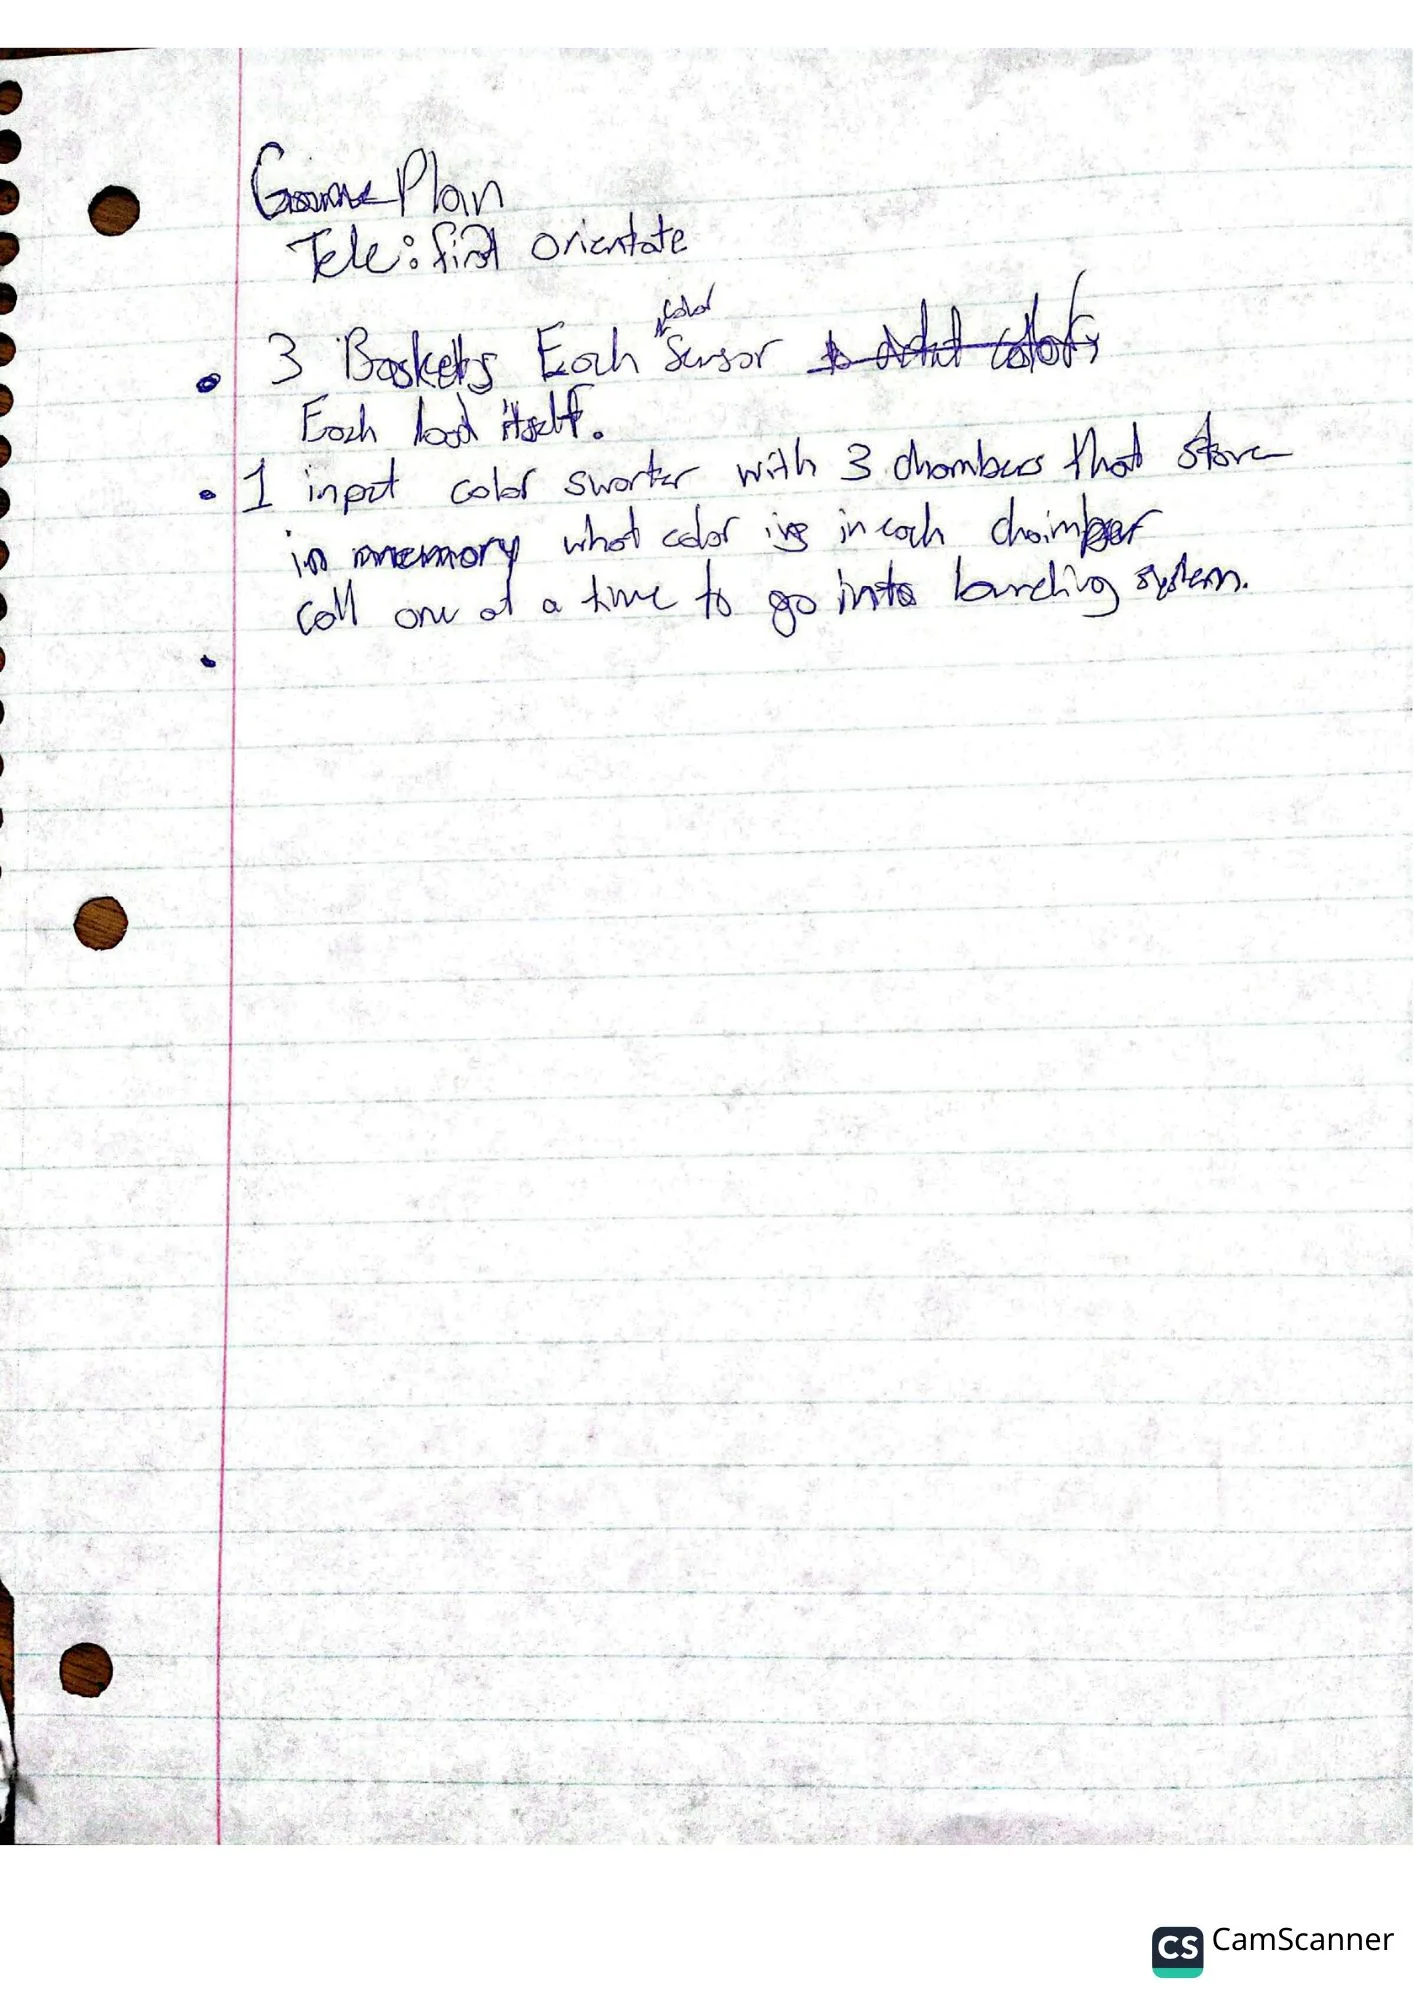 Game Plan
Tele: first orientate
• 3 Baskets Each color Sensor to detect colors
Each load itself.
• 1 input color sworter with 3 chambers that store
in memory what color is in each chaimber
call one at a time to go into launching system.
•
CS CamScanner